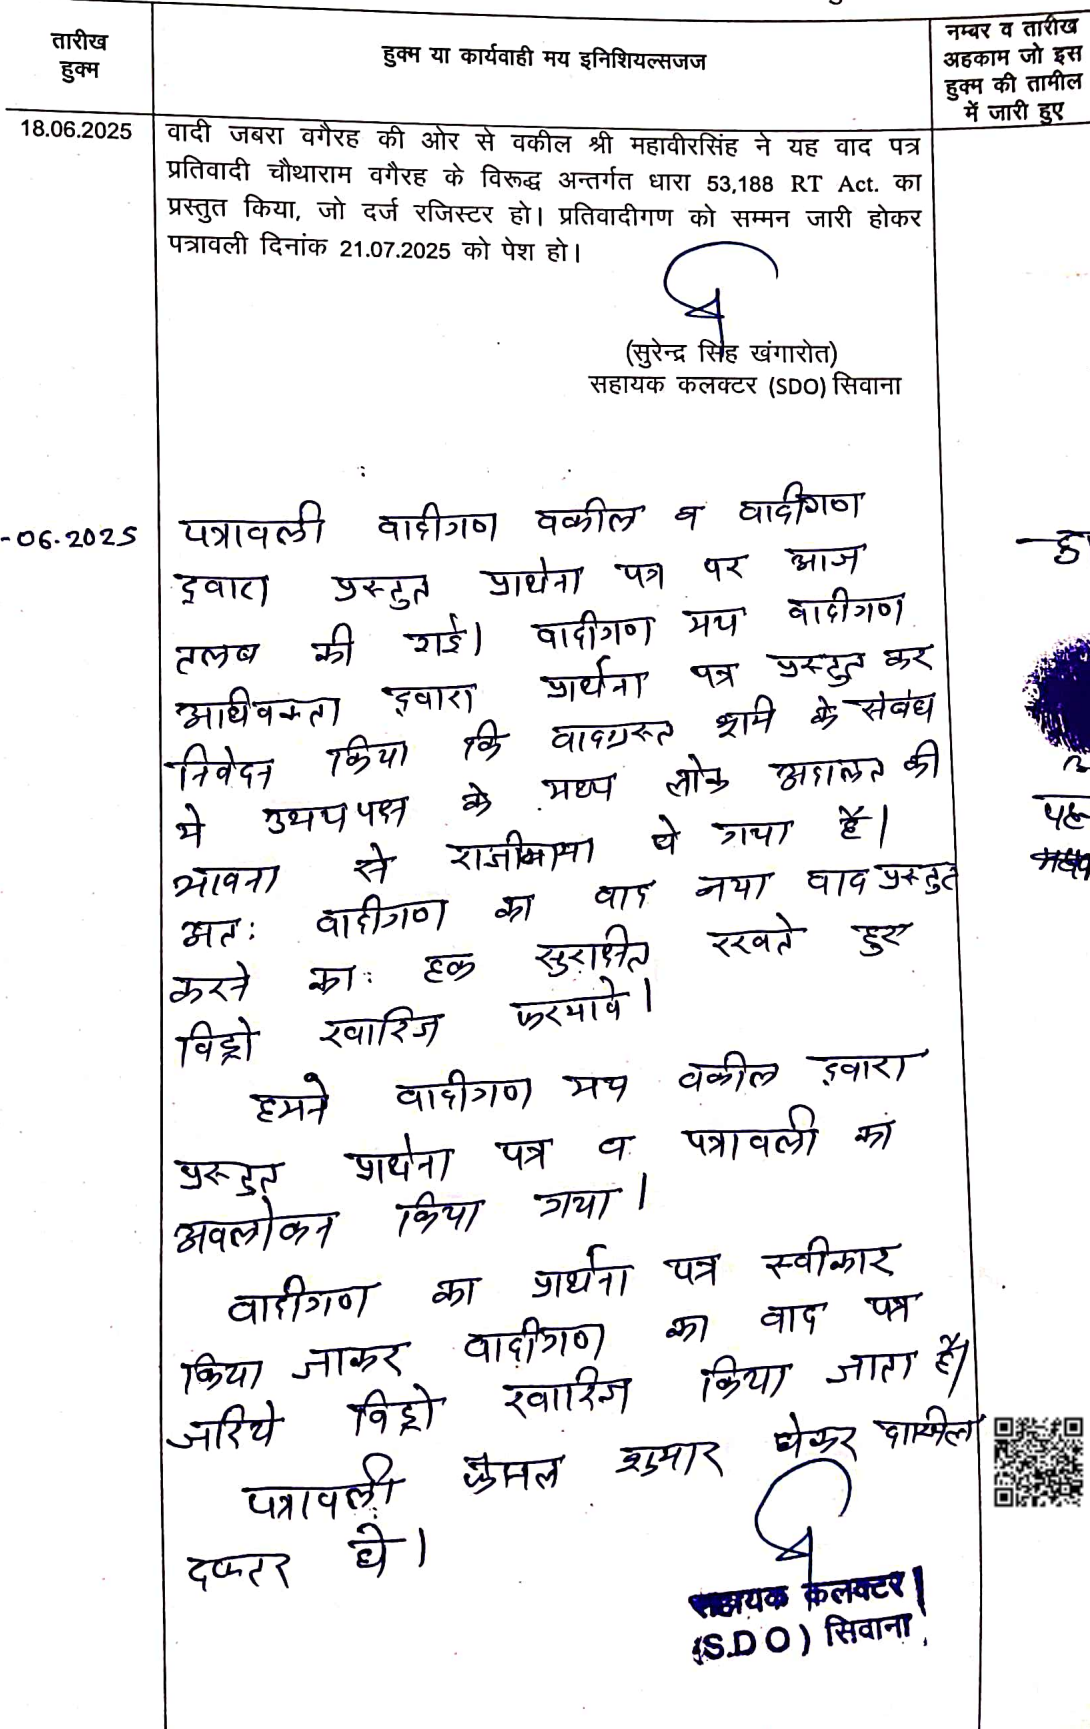 तारीख
हुक्म
हुक्म या कार्यवाही मय इनिशियल्सजज
नम्बर व तारीख
अहकाम जो इस
हुक्म की तामील
में जारी हुए
18.06.2025
वादी जबरा वगैरह की ओर से वकील श्री महावीरसिंह ने यह वाद पत्र
प्रतिवादी चौथाराम वगैरह के विरूद्ध अन्तर्गत धारा 53,188 RT Act. का
प्रस्तुत किया, जो दर्ज रजिस्टर हो। प्रतिवादीगण को सम्मन जारी होकर
पत्रावली दिनांक 21.07.2025 को पेश हो।
(सुरेन्द्र सिंह खंगारोत)
सहायक कलक्टर (SDO) सिवाना
-06.2025
पत्रावली वादीगण वकील व वादीगण
द्वारा प्रस्तुत प्रार्थना पत्र पर आज
तलब की गई। वादीगण मय वादीगण
अधिवक्ता द्वारा प्रार्थना पत्र प्रस्तुत कर
निवेदन किया कि वादग्रस्त भूमि के संबंध
मे उभयपक्ष के मध्य लोक अदालत की
भावना से राजीनामा हो गया है।
अतः वादीगण का वाद नया वाद प्रस्तुत
करने का हक सुरक्षित रखते हुए
विड्रो खारिज फरमावे।
हमने वादीगण मय वकील द्वारा
प्रस्तुत प्रार्थना पत्र व पत्रावली का
अवलोकन किया गया।
वादीगण का प्रार्थना पत्र स्वीकार
किया जाकर वादीगण का वाद पत्र
जरिये विड्रो खारिज किया जाता है।
पत्रावली फैसल शुमार होकर दाखिल
दफ्तर हो।
सहायक कलक्टर
(S.D.O) सिवाना